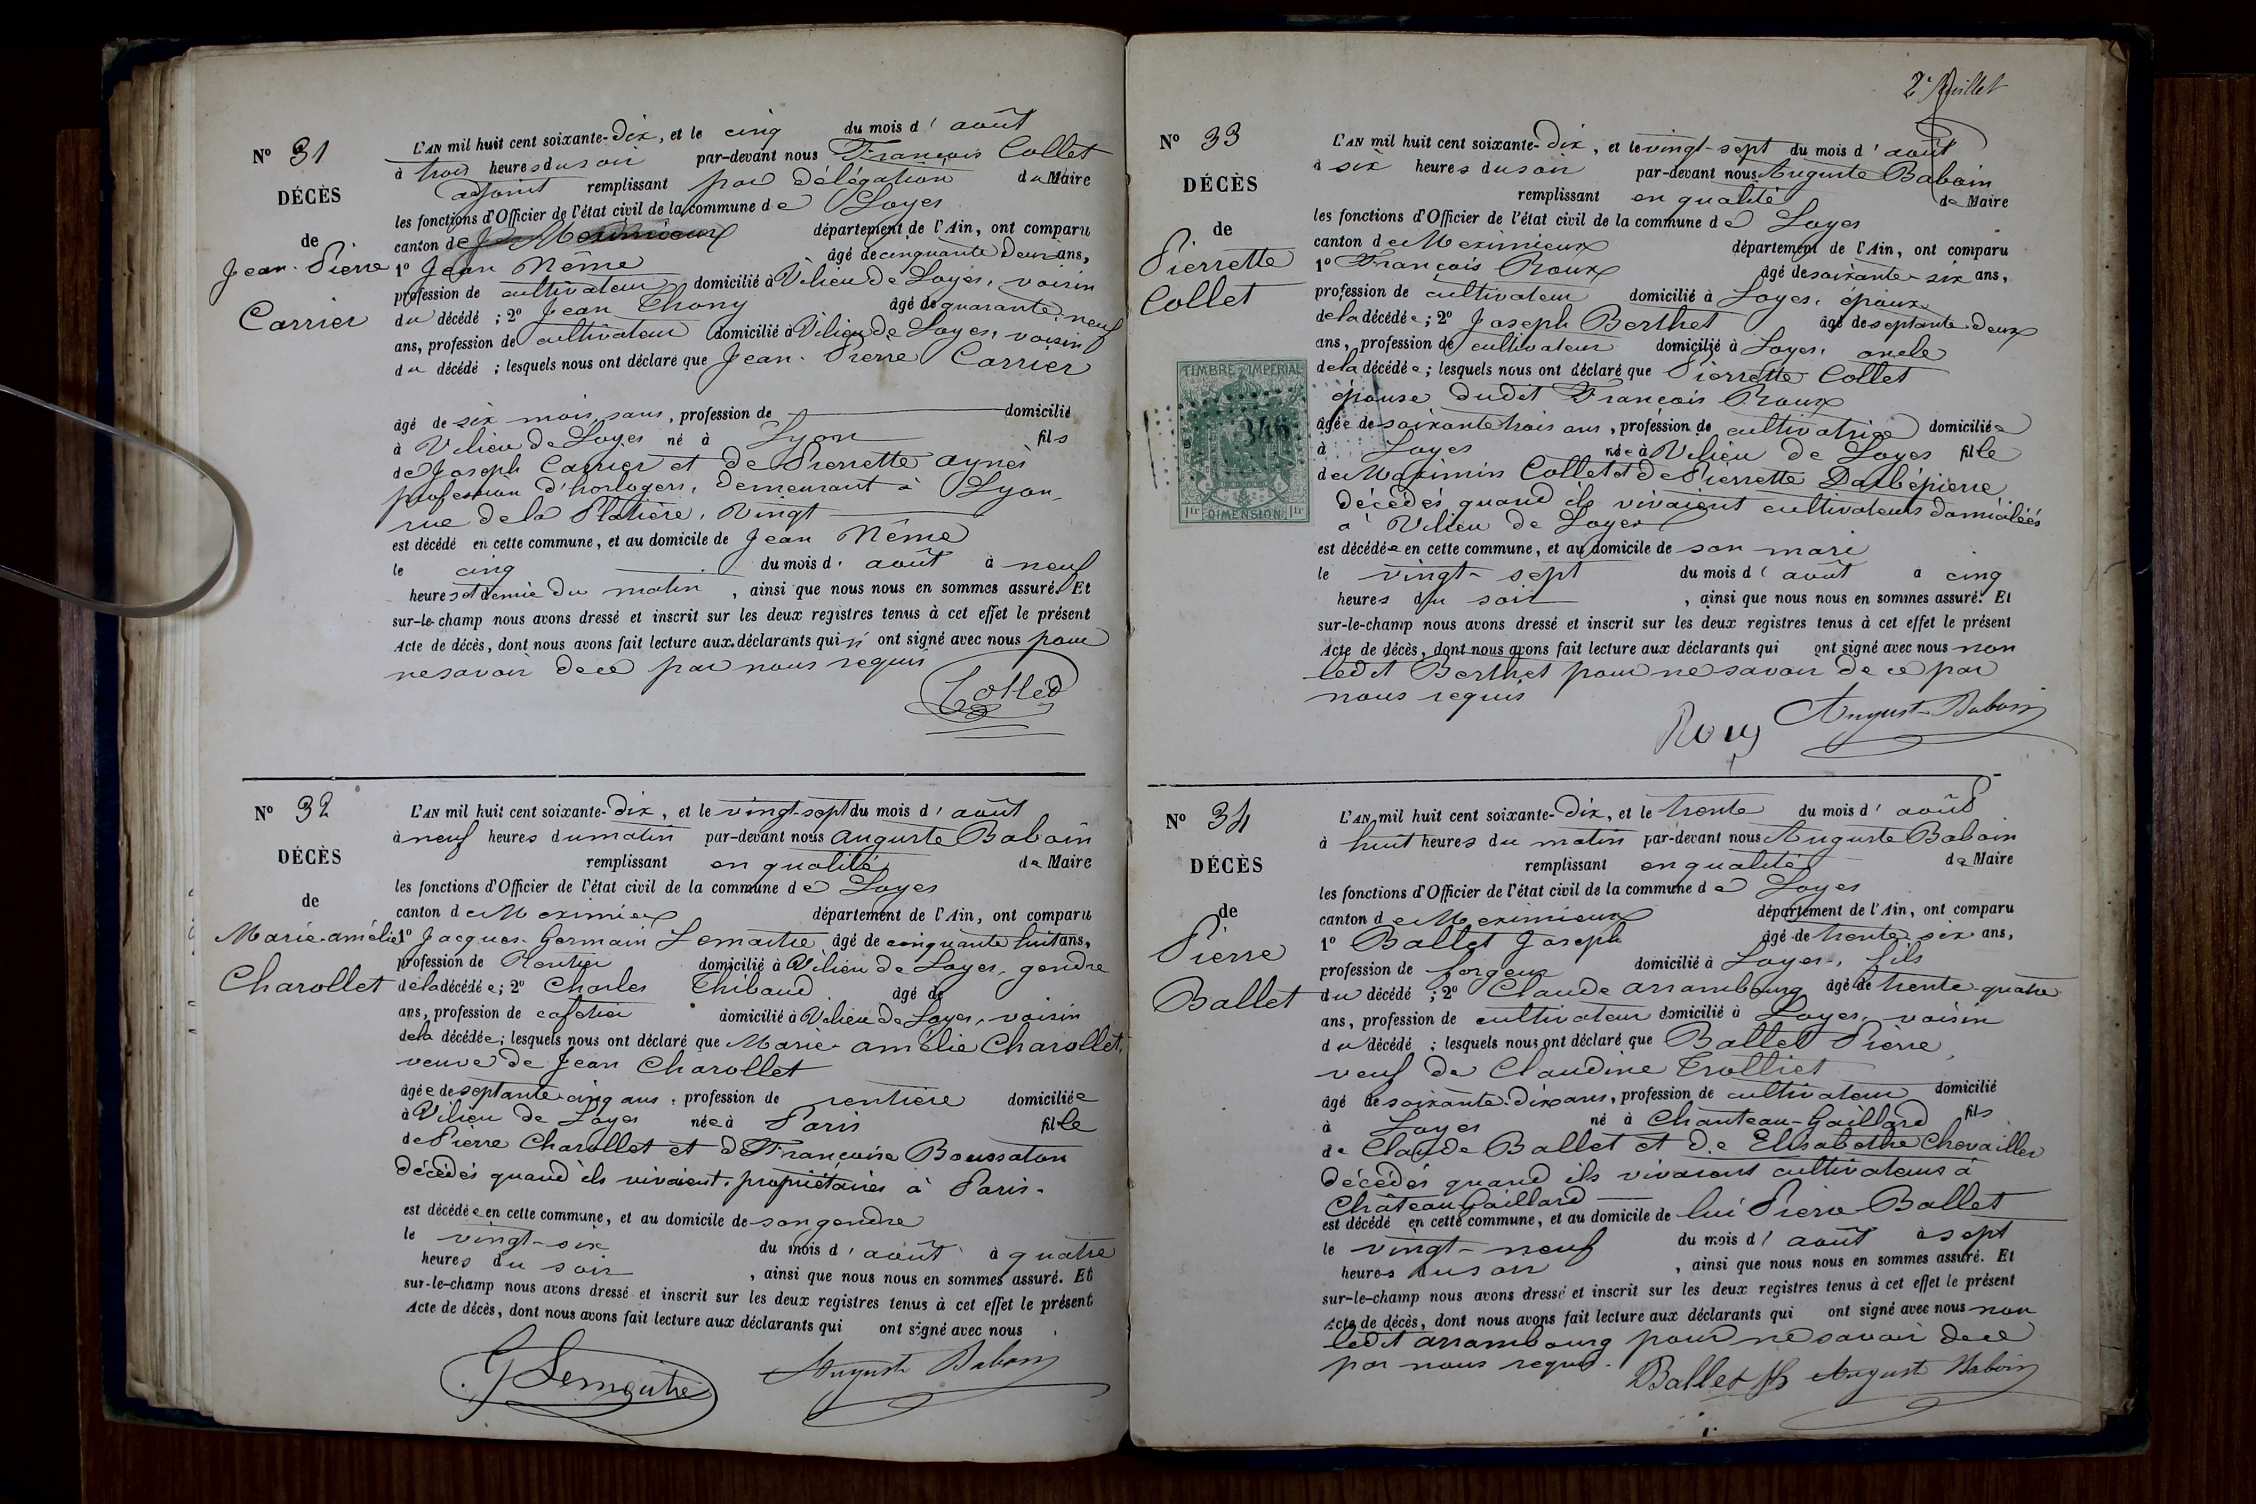 N° 31
DÉCÈS
de
Jean-Pierre
Carrier
L'AN mil huit cent soixante-Dix, et le cinq du mois d'août
à trois heures du soir par-devant nous François Collet
adjoint remplissant par délégation du Maire
les fonctions d'Officier de l'état civil de la commune de Loyes
canton de Meximieux département de l'Ain, ont comparu
1° Jean Même âgé de cinquante deux ans,
profession de cultivateur domicilié à Vilieu de Loyes, voisin
du décédé ; 2° Jean Thony âgé de quarante neuf
ans, profession de cultivateur domicilié à Vilieu de Loyes, voisin
du décédé ; lesquels nous ont déclaré que Jean-Pierre Carrier
âgé de six mois, sans, profession de domicilié
à Vilieu de Loyes né à Lyon fils
de Joseph Carrier et de Pierrette Aynès
profession d'horlogers, demeurant à Lyon,
rue de la Platière, Vingt
est décédé en cette commune, et au domicile de Jean Même
le cinq du mois d'août à neuf
heures et demie du matin, ainsi que nous nous en sommes assuré. Et
sur-le-champ nous avons dressé et inscrit sur les deux registres tenus à cet effet le présent
Acte de décès, dont nous avons fait lecture aux déclarants qui n' ont signé avec nous pour
ne savoir de ce par nous requis
Collet
N° 32
DÉCÈS
de
Marie-amélie
Charollet
L'AN mil huit cent soixante-Dix, et le vingt-sept du mois d'août
à neuf heures du matin par-devant nous Auguste Baboin
remplissant en qualité de Maire
les fonctions d'Officier de l'état civil de la commune de Loyes
canton de Meximieux département de l'Ain, ont comparu
1° Jacques-Germain Lemaitre âgé de cinquante huit ans,
profession de Rentier domicilié à Vilieu de Loyes, gendre
de la décédée ; 2° Charles Thibaud âgé de
ans, profession de cafetier domicilié à Vilieu de Loyes, voisin
de la décédée ; lesquels nous ont déclaré que Marie-amélie Charollet,
veuve de Jean Charollet
âgée de septante cinq ans, profession de rentière domiciliée
à Vilieu de Loyes née à Paris fille
de Pierre Charollet et de Françoise Boussaton
décédés quand ils vivaient, propriétaires à Paris.
est décédée en cette commune, et au domicile de son gendre
le vingt-six du mois d'août à quatre
heures du soir, ainsi que nous nous en sommes assuré. Et
sur-le-champ nous avons dressé et inscrit sur les deux registres tenus à cet effet le présent
Acte de décès, dont nous avons fait lecture aux déclarants qui ont signé avec nous
G Lemaitre Auguste Baboin
2e feuillet
N° 33
DÉCÈS
de
Pierrette
Collet
TIMBRE IMPERIAL
346
1 fr DIMENSION 1 fr
L'AN mil huit cent soixante-Dix, et le vingt-sept du mois d'août
à six heures du soir par-devant nous Auguste Baboin
remplissant en qualité de Maire
les fonctions d'Officier de l'état civil de la commune de Loyes
canton de Meximieux département de l'Ain, ont comparu
1° François Roux âgé de soixante-six ans,
profession de cultivateur domicilié à Loyes, époux
de la décédée ; 2° Joseph Berthet âgé de septante-deux
ans, profession de cultivateur domicilié à Loyes, oncle
de la décédée ; lesquels nous ont déclaré que Pierrette Collet
épouse dudit François Roux
âgée de soixante trois ans, profession de cultivatrice domiciliée
à Loyes née à Vilieu de Loyes fille
de Maximin Collet et de Pierrette Dalbépierre
décédés quand ils vivaient cultivateurs domiciliés
à Vilieu de Loyes
est décédée en cette commune, et au domicile de son mari
le vingt-sept du mois d'août à cinq
heures du soir, ainsi que nous nous en sommes assuré. Et
sur-le-champ nous avons dressé et inscrit sur les deux registres tenus à cet effet le présent
Acte de décès, dont nous avons fait lecture aux déclarants qui ont signé avec nous non
ledit Berthet pour ne savoir de ce par
nous requis
Roux Auguste Baboin
N° 34
DÉCÈS
de
Pierre
Ballet
L'AN mil huit cent soixante-Dix, et le trente du mois d'août
à huit heures du matin par-devant nous Auguste Baboin
remplissant en qualité de Maire
les fonctions d'Officier de l'état civil de la commune de Loyes
canton de Meximieux département de l'Ain, ont comparu
1° Ballet Joseph âgé de trente six ans,
profession de forgeur domicilié à Loyes, fils
du décédé ; 2° Claude arrambourg âgé de trente-quatre
ans, profession de cultivateur domicilié à Loyes, voisin
du décédé ; lesquels nous ont déclaré que Ballet Pierre,
veuf de Claudine Trolliet
âgé de soixante-dix ans, profession de cultivateur domicilié
à Loyes né à Chanteau-Gaillard fils
de Claude Ballet et de Elisabethe Chevailler
décédés quand ils vivaient cultivateurs à
Château Gaillard
est décédé en cette commune, et au domicile de lui Pierre Ballet
le vingt-neuf du mois d'août à sept
heures du soir, ainsi que nous nous en sommes assuré. Et
sur-le-champ nous avons dressé et inscrit sur les deux registres tenus à cet effet le présent
Acte de décès, dont nous avons fait lecture aux déclarants qui ont signé avec nous non
ledit arrambourg pour ne savoir de ce
par nous requis.
Ballet Jh Auguste Baboin